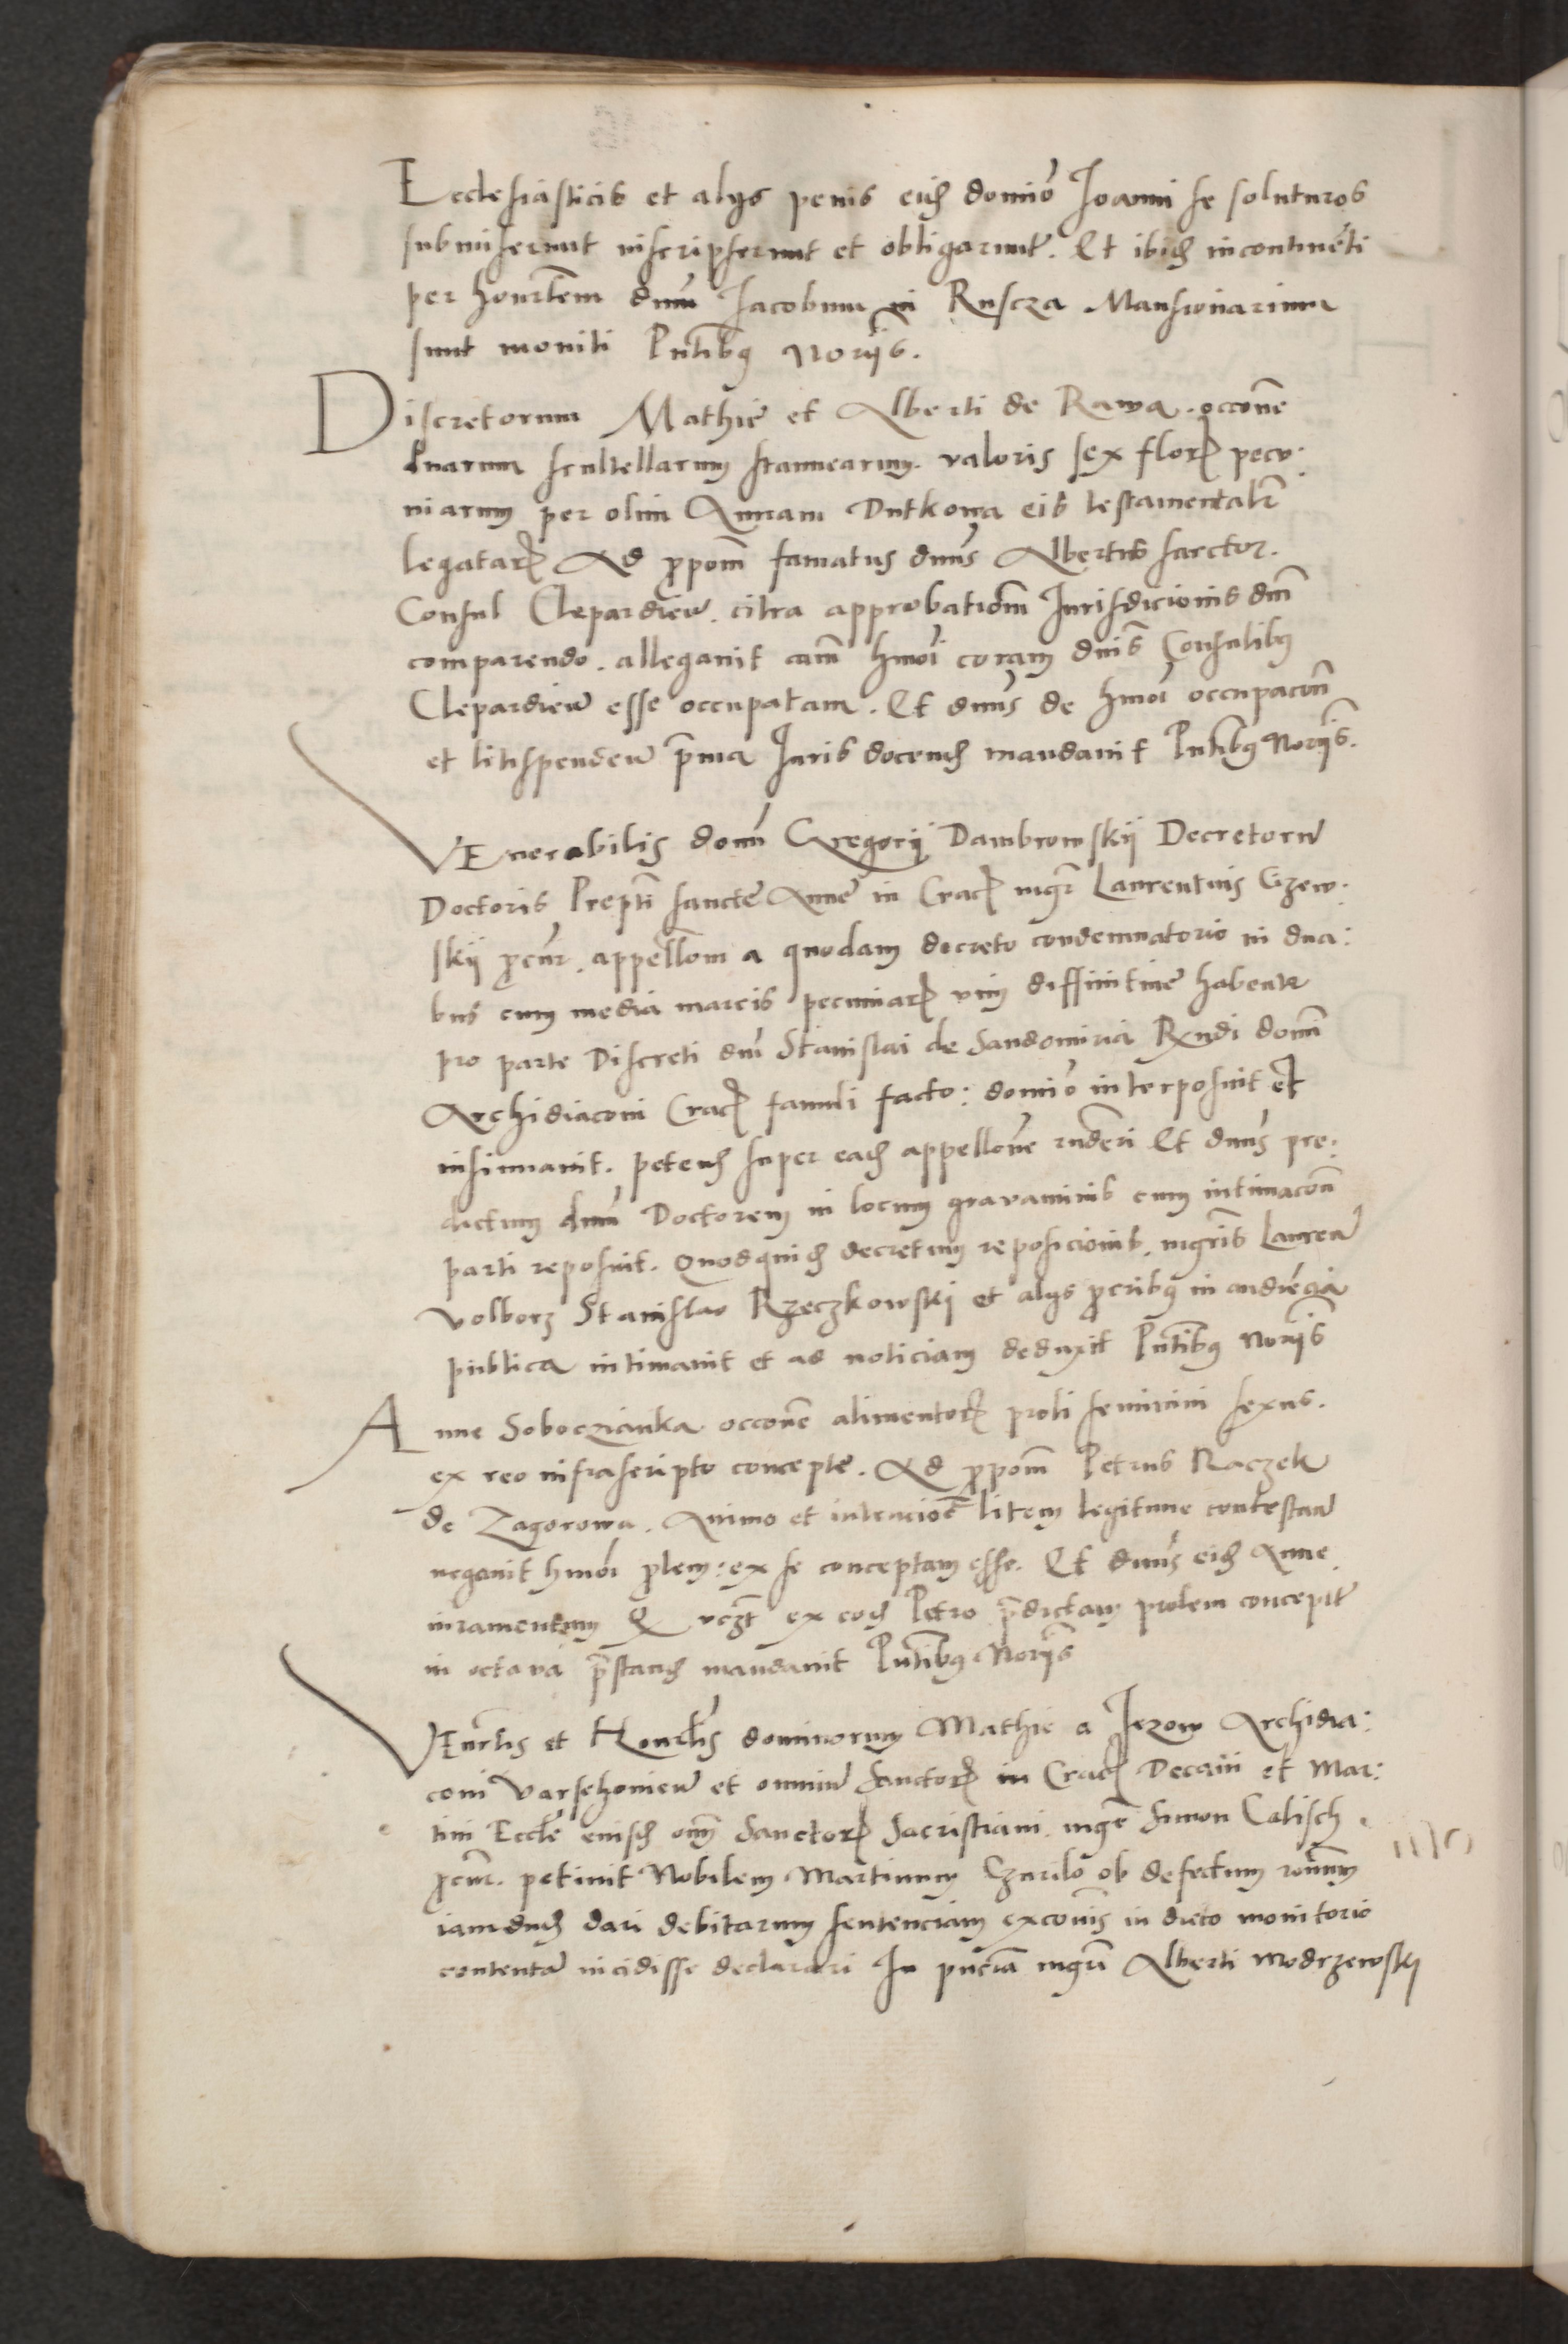 Ecclesiasticis et alijs penis eid domio Joanni se soluturos
submiserunt inscripserunt et obligarunt. Et ibid incontinēti
per honrtem dnm Jacobum in Ruscza Mansionarium
sunt moniti Pntibg Norijs.
Discretorum Mathie et Alberti de Rawa occone
duarum scultellarum stannearum valoris sex flor pecu:
niarum per olim Annam Dutkowa eis testamentalr
legatar Ad ppom famatus dnus Albertus sartor.
Consul Clepardien. citra approbatiom Jurisdicionis dni
comparendo. allegauit cam hmoi coram dnis Consulibg
Clepardien esse occupatam. Et dnus de hmoi occupacon
et litispenden pma Juris docend mandauit Pntibg Norijs.
VEnerabilis domi Gregorij Dambrowskij Decretoru
Doctoris Prepti sancte Anne in Crac mgr Laurentius Gzew:
skij pcur. appellom a quodam decreto condemnatorio in dua:
bus cum media marcis pecuniar vim diffinitiue haben
pro parte Discreti dni Stanislai de Sandomiria Rndi domi
Archidiaconi Crac famuli facto: domio interposuit et
insinuauit. petend super ead appellone rnderi Et dnus pre:
dictum dnm Doctorem in locum grauaminis cum intimacon
parti reposuit. Quodquid decretum reposicionis. mgris Lauren
Volborz Stanislao Rzeczkowskj et alijs pcribg in audiēcia
publica intimauit et ad noticiam deduxit Pntibg Norijs
Anne Soboczianka occone alimentor proli feminini sexus.
ex reo infrascripto concepte. Ad ppom Petrus Raczek
de Zagorowa. Animo et intencioe litem legitime contestan
negauit hmoi plem: ex se conceptam esse. Et dnus eid Anne
iuramentum Q vczt ex eod Petro pdictam prolem concepit
in octaua pstand mandauit Pntibg Norijs
VEnrlis et Honrlis dominorum Mathie a Jezow Archidia:
coni Varschouien et omniu Sanctor in Crac Decani et Mar:
tini Eccle eiusd om Sanctor Sacristiani. mgr Simon Calisch.
pcur. petiuit Nobilem Martinum Czurilo ob defectum ronum
iamdud dari debitarum sentenciam exconis in dicto monitorio
contenta incidisse declarari In pncia mgri Alberti Modrzewskj